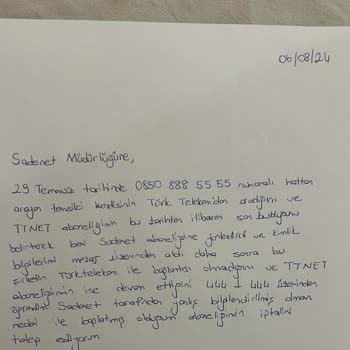 06/08/24
Sadenet Müdürlüğüne,
29 Temmuz tarihinde 0850 888 55 55 numaralı hattan
arayan temsilci kendisinin Türk Telekom'dan aradığını ve
TTNET aboneliğimin bu tarihten itibaren son bulduğunu
belirterek beni Sadenet aboneliğine yönlendirdi ve kimlik
bilgilerimi mesaj üzerinden aldı daha sonra bu
şirketin Türktelekom ile bağlantısı olmadığını ve TTNET
aboneliğimin ise devam ettiğini 444 1 444 üzerinden
öğrendim Sadenet tarafından yanlış bilgilendirilmiş olmam
nedeni ile başlatmış olduğum aboneliğimin iptalini
talep ediyorum